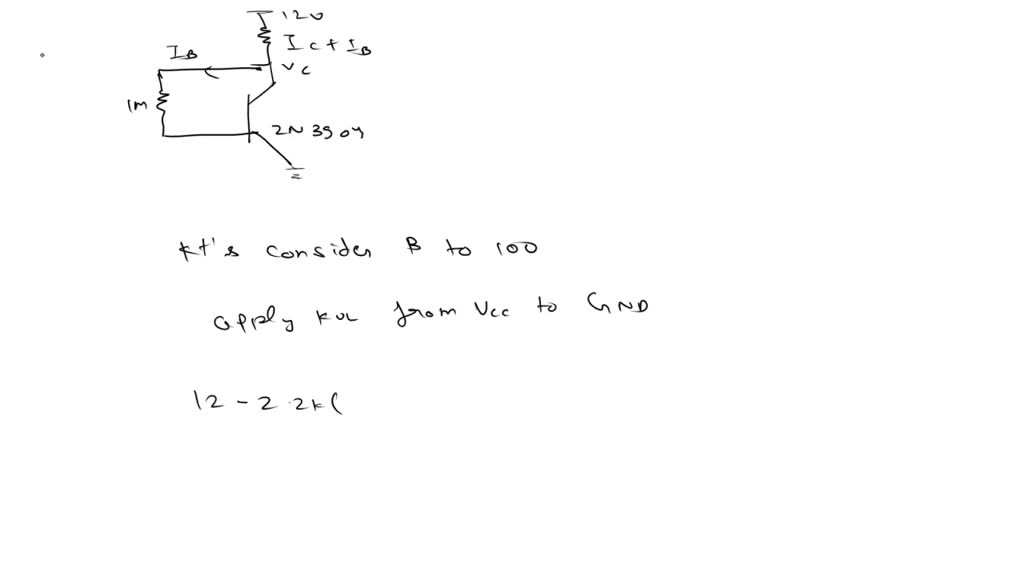 12V
IC + IB
IB
VC
1M
2N 3904
let's consider B to 100
apply KVL from Vcc to GND
12 - 2.2k(